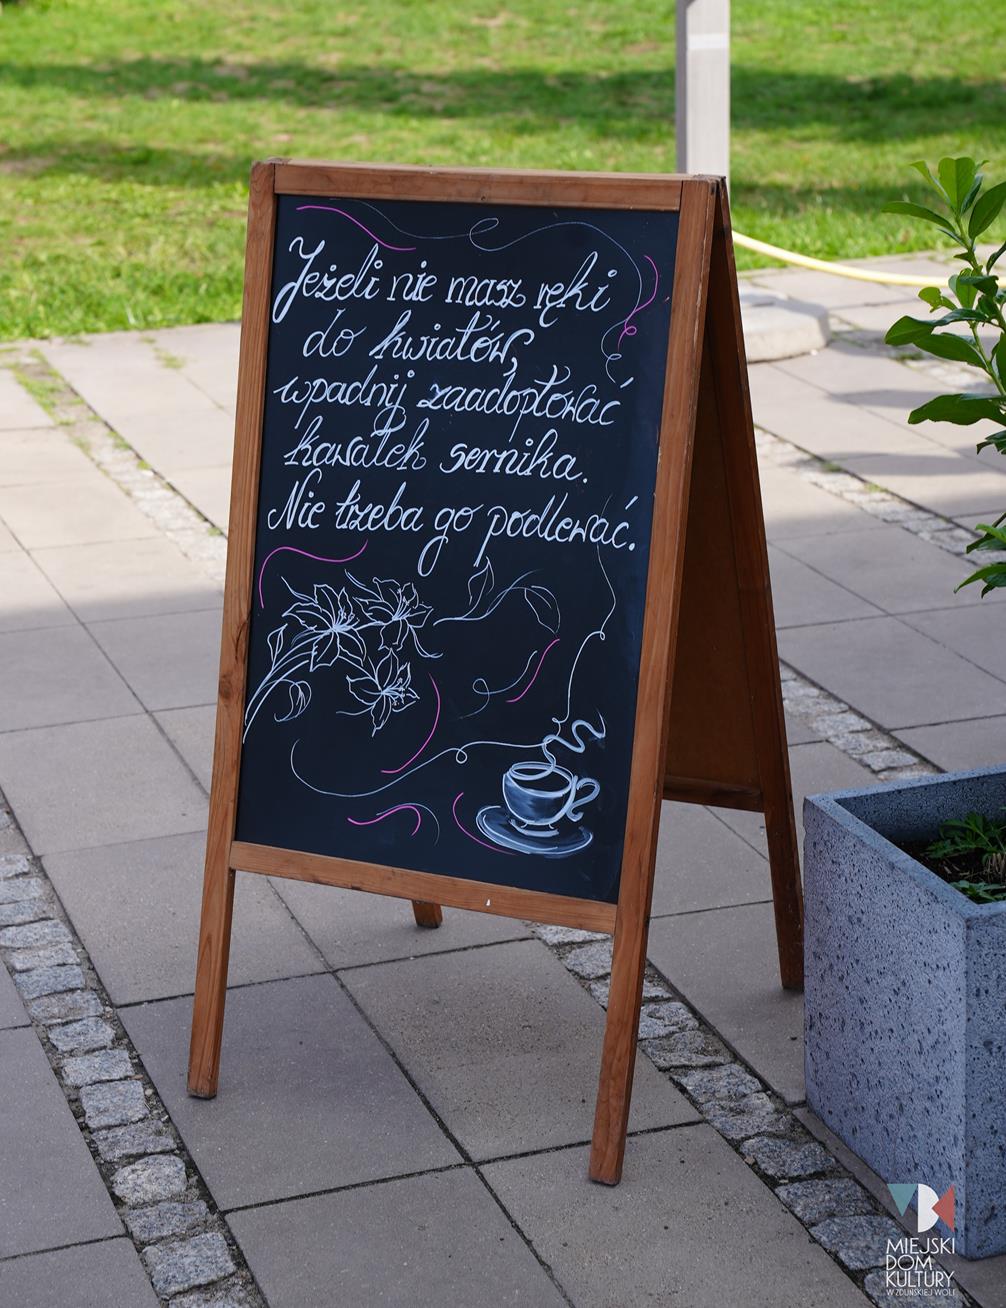 Jeżeli nie masz ręki
do kwiatów,
wpadnij zaadoptować
kawałek sernika.
Nie trzeba go podlewać.
MIEJSKI
DOM
KULTURY
W ZDUŃSKIEJ WOLI